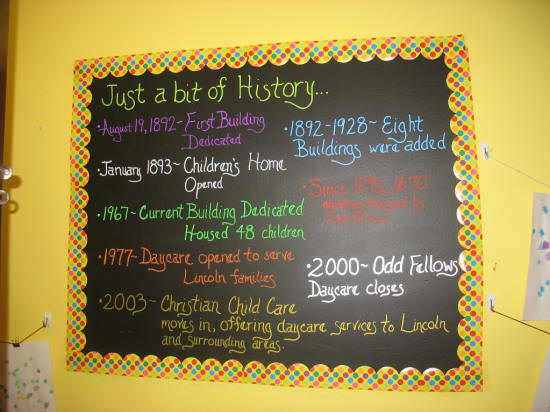 Just a bit of History...
•August 19, 1892~First Building
Dedicated
•January 1893~Children's Home
Opened
•1967~Current Building Dedicated
Housed 48 children
•1977~Daycare opened to serve
Lincoln families
•2003~Christian Child Care
moves in, offering daycare services to Lincoln
and surrounding areas.
•1892-1928~Eight
Buildings were added
•Since 1893, 1,670
children housed by
Odd Fellows
•2000~Odd Fellows
Daycare closes